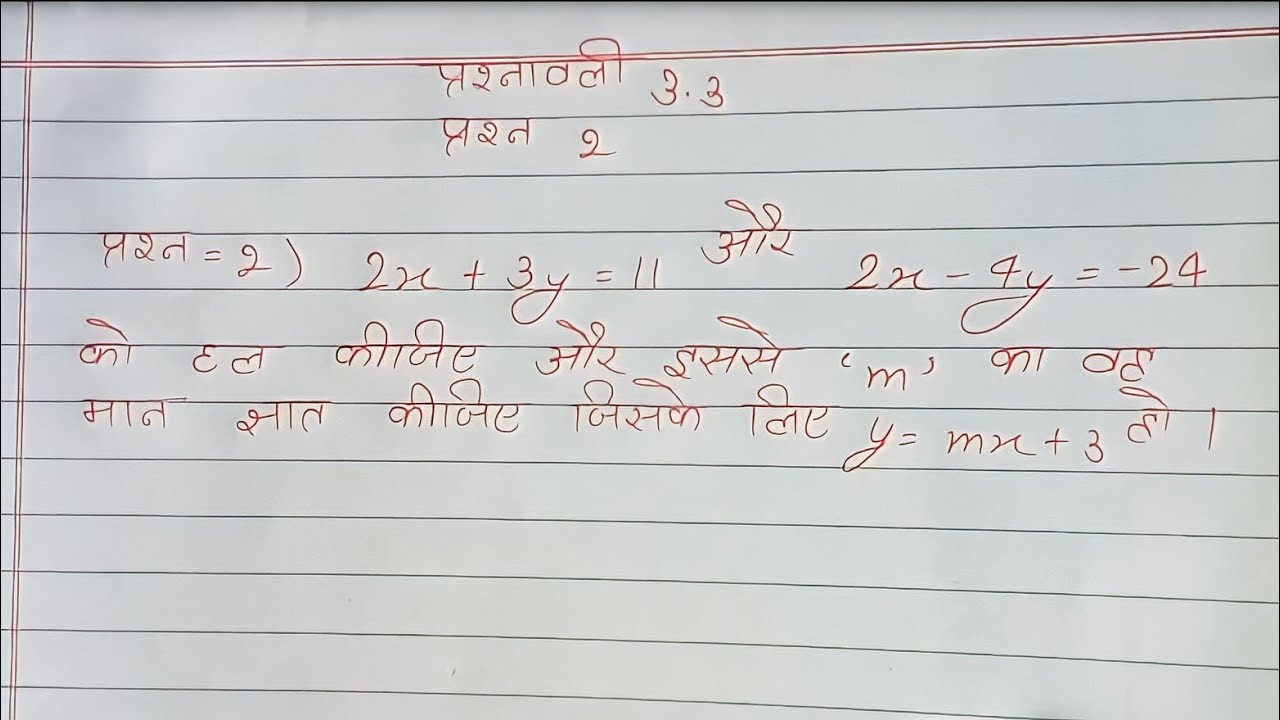 प्रश्नावली 3.3
प्रश्न 2
प्रश्न = 2) 2x + 3y = 11 और 2x - 4y = -24
को हल कीजिए और इससे 'm' का वह
मान ज्ञात कीजिए जिसके लिए y = mx + 3 हो।